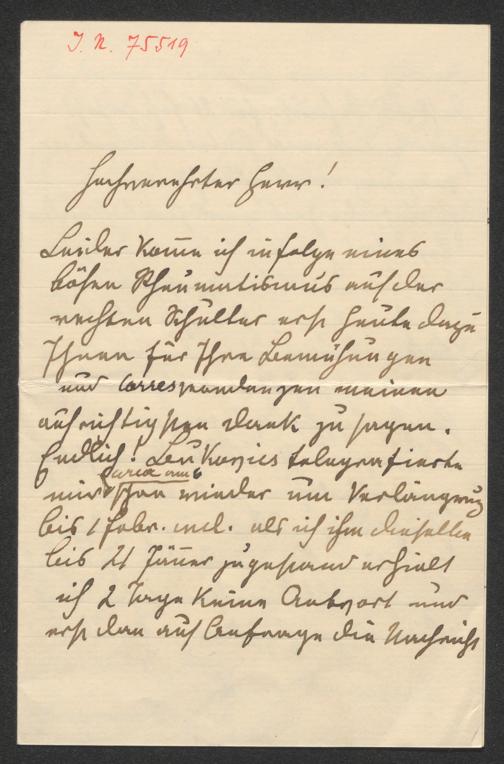 J. N. 75519
Hochverehrter Herr!
Leider kom̄e ich infolge eines
bösen Rheumatismus auf der
rechten Schulter erst heute dazu
Ihnen für Ihre Bemühungen
und Correspondenzen meinen
aufrichtigsten Dank zu sagen.
Endlich! Leukovics telegrafierte
circa am 6
mir schon wieder um Verlängerung
bis 1 Febr. incl. als ich ihm dieselbe
bis 21 Jänner zugestand erhielt
ich 2 Tage keine Antwort und
erst dan auf Anfrage die Nachricht